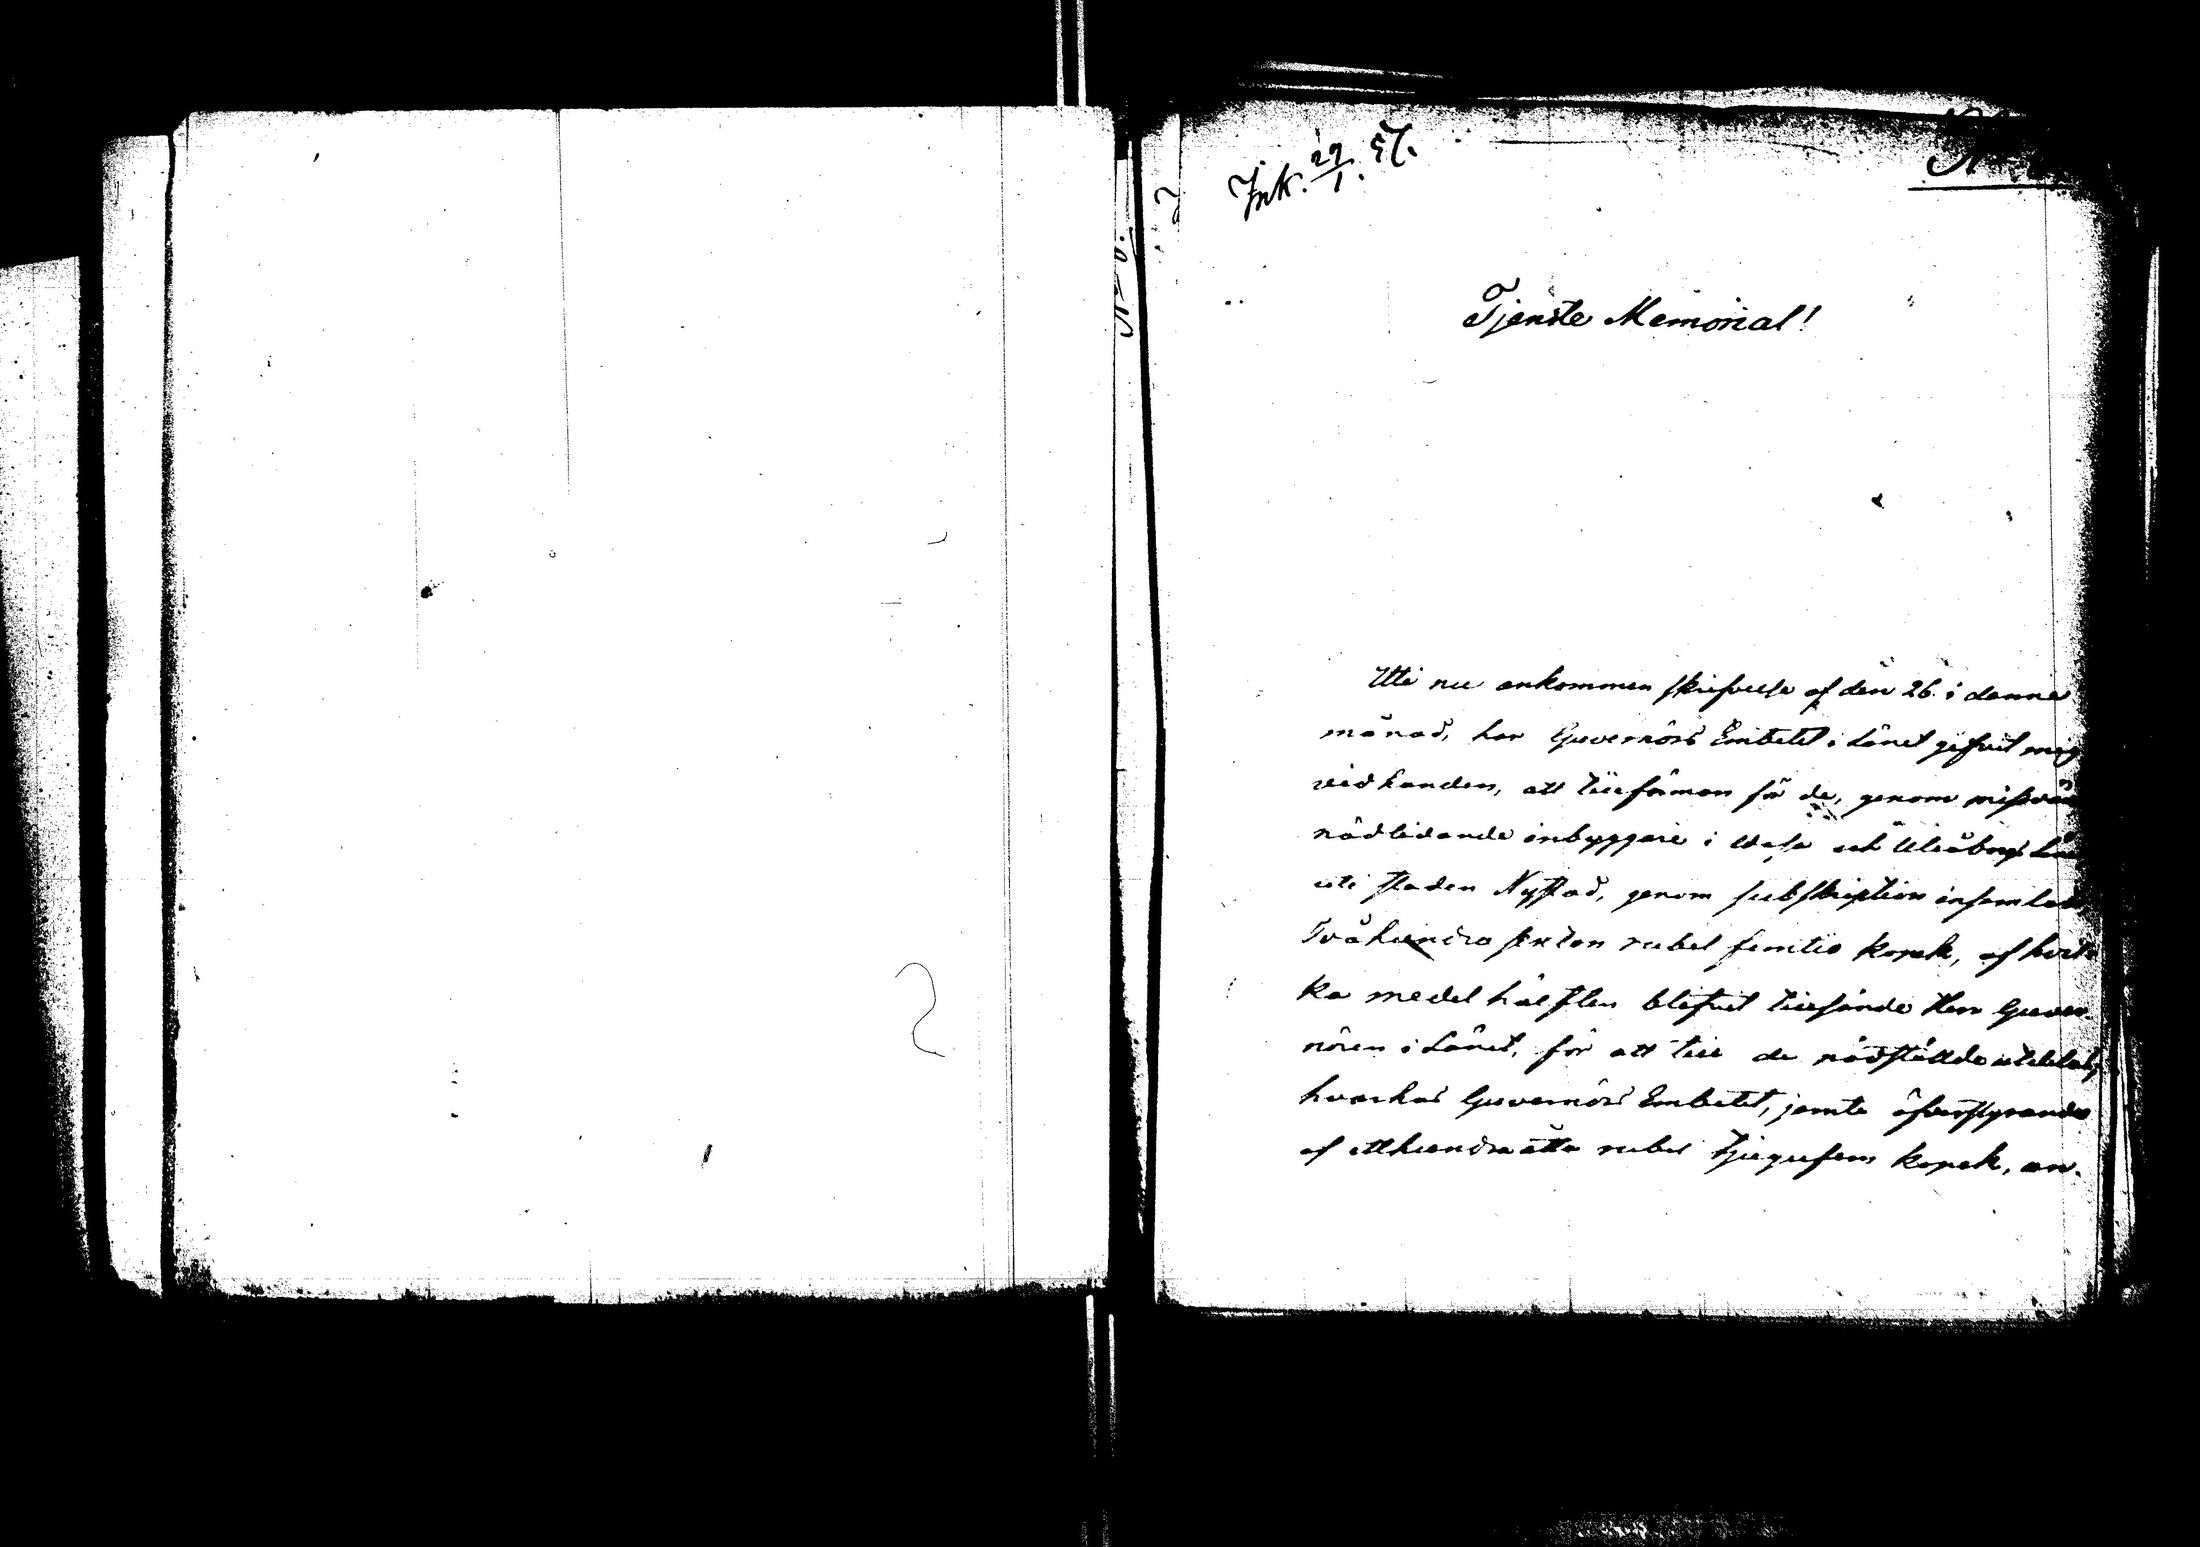 Ink. 29/1. 57.
N
Tjenste Memorial!
Uti nu ankommen skrifvelse af den 26 i denne
månad, har Guvernörs Embetet i Länet gifvit mig
vid handen, att till förmon för de, genom missväxt
nödlidande inbyggare i Wasa och Uleåborgs Län
uti staden Nystad, genom subskription insamlats
Tvåhundra sexton rubel femtio kopek, af hvil-
ka medel hälften blifvit tillsände Herr Guver-
nören i Länet, för att till de nödställde utdelas,
hvarhos Guvernörs Embetet, jemte öfverstyrande
af etthundra åtta rubel tjugufem kopek, an-